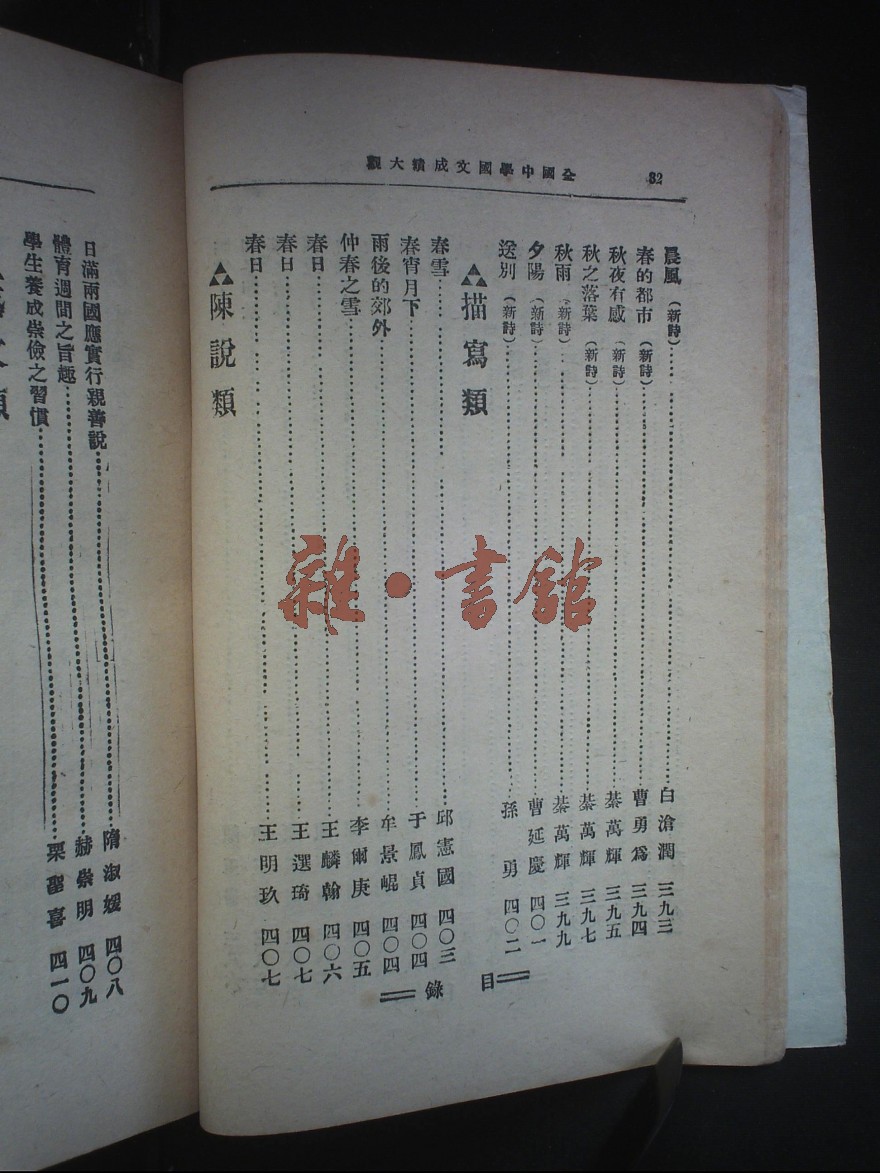 全國中學國文成績大觀
32
晨風（新詩）白滄潤 三九三
春的都市（新詩）曹勇為 三九四
秋夜有感（新詩）綦萬輝 三九五
秋之落葉（新詩）綦萬輝 三九七
秋雨（新詩）綦萬輝 三九九
夕陽（新詩）曹延慶 四〇一
送別（新詩）孫勇 四〇二
描寫類
春雪 邱憲國 四〇三
春宵月下 于鳳貞 四〇四
雨後的郊外 牟景崐 四〇四
仲春之雪 李爾庚 四〇五
春日 王麟翰 四〇六
春日 王選琦 四〇七
春日 王明玖 四〇七
陳說類
目錄
日滿兩國應實行親善說 隋淑媛 四〇八
體育週間之旨趣 赫崇明 四〇九
學生養成崇儉之習慣 栗聖喜 四一〇
類
雜·書館